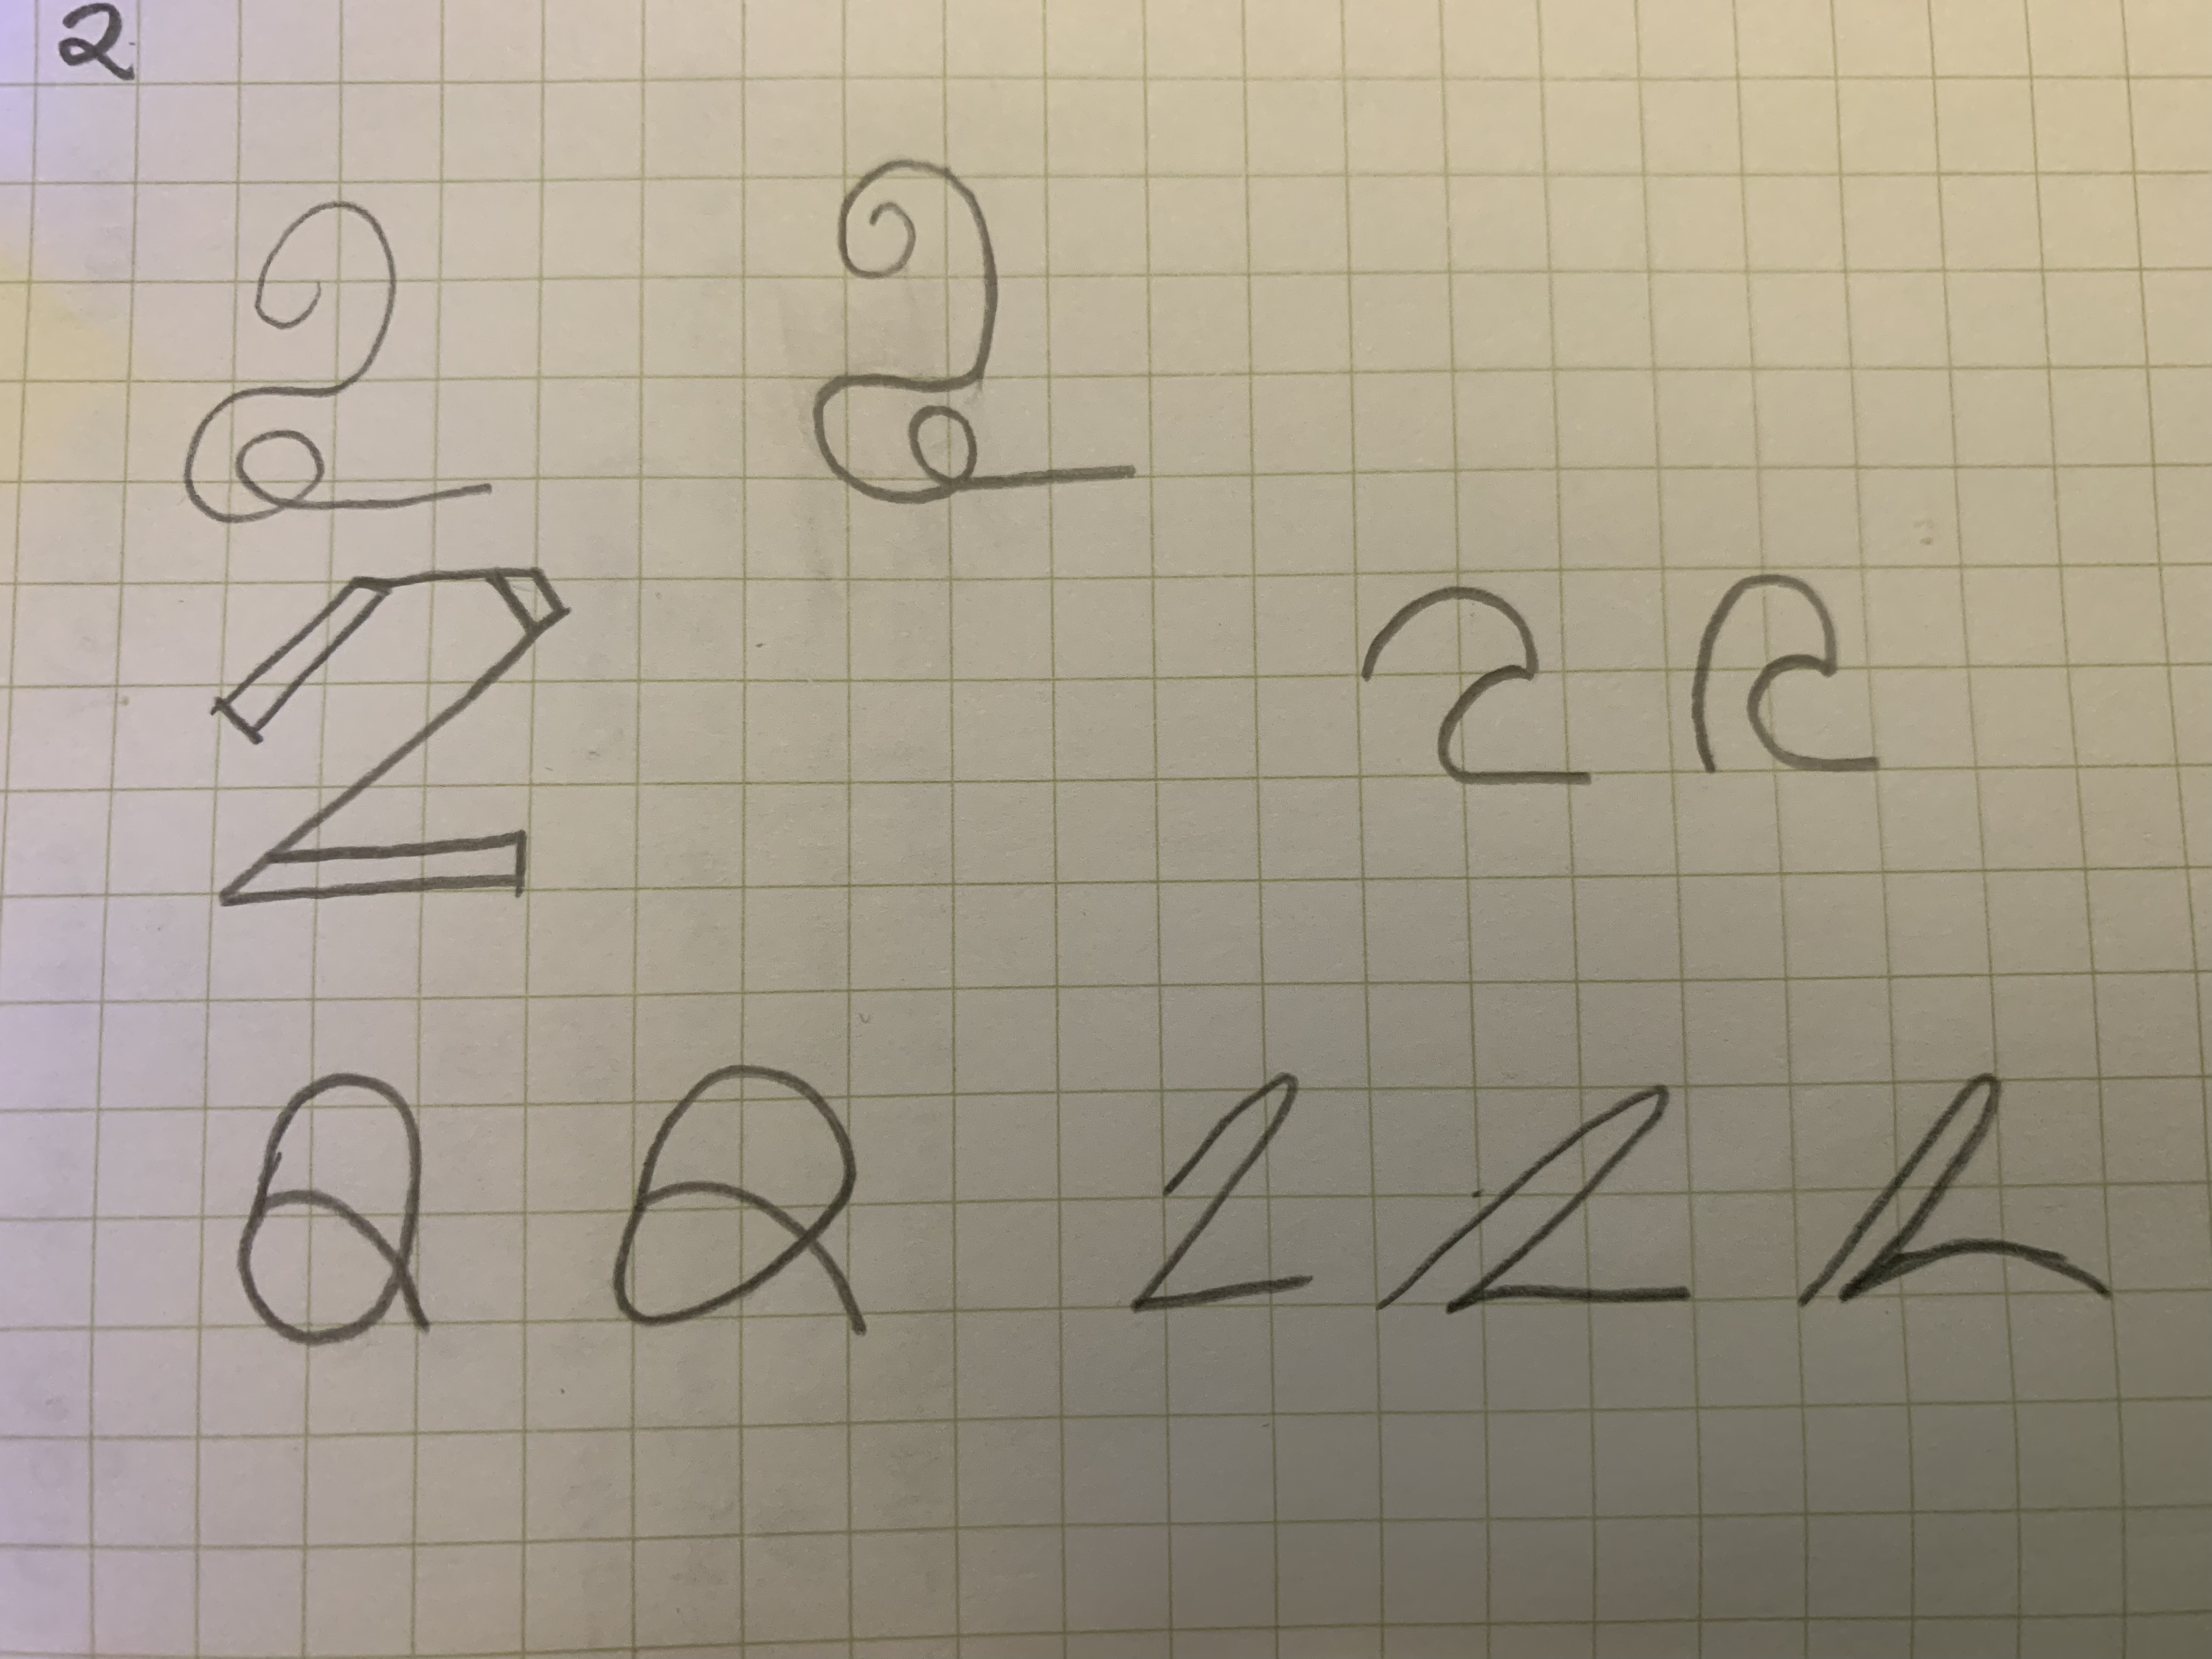 2
2 2
2 2 2
2 2 2 2 2